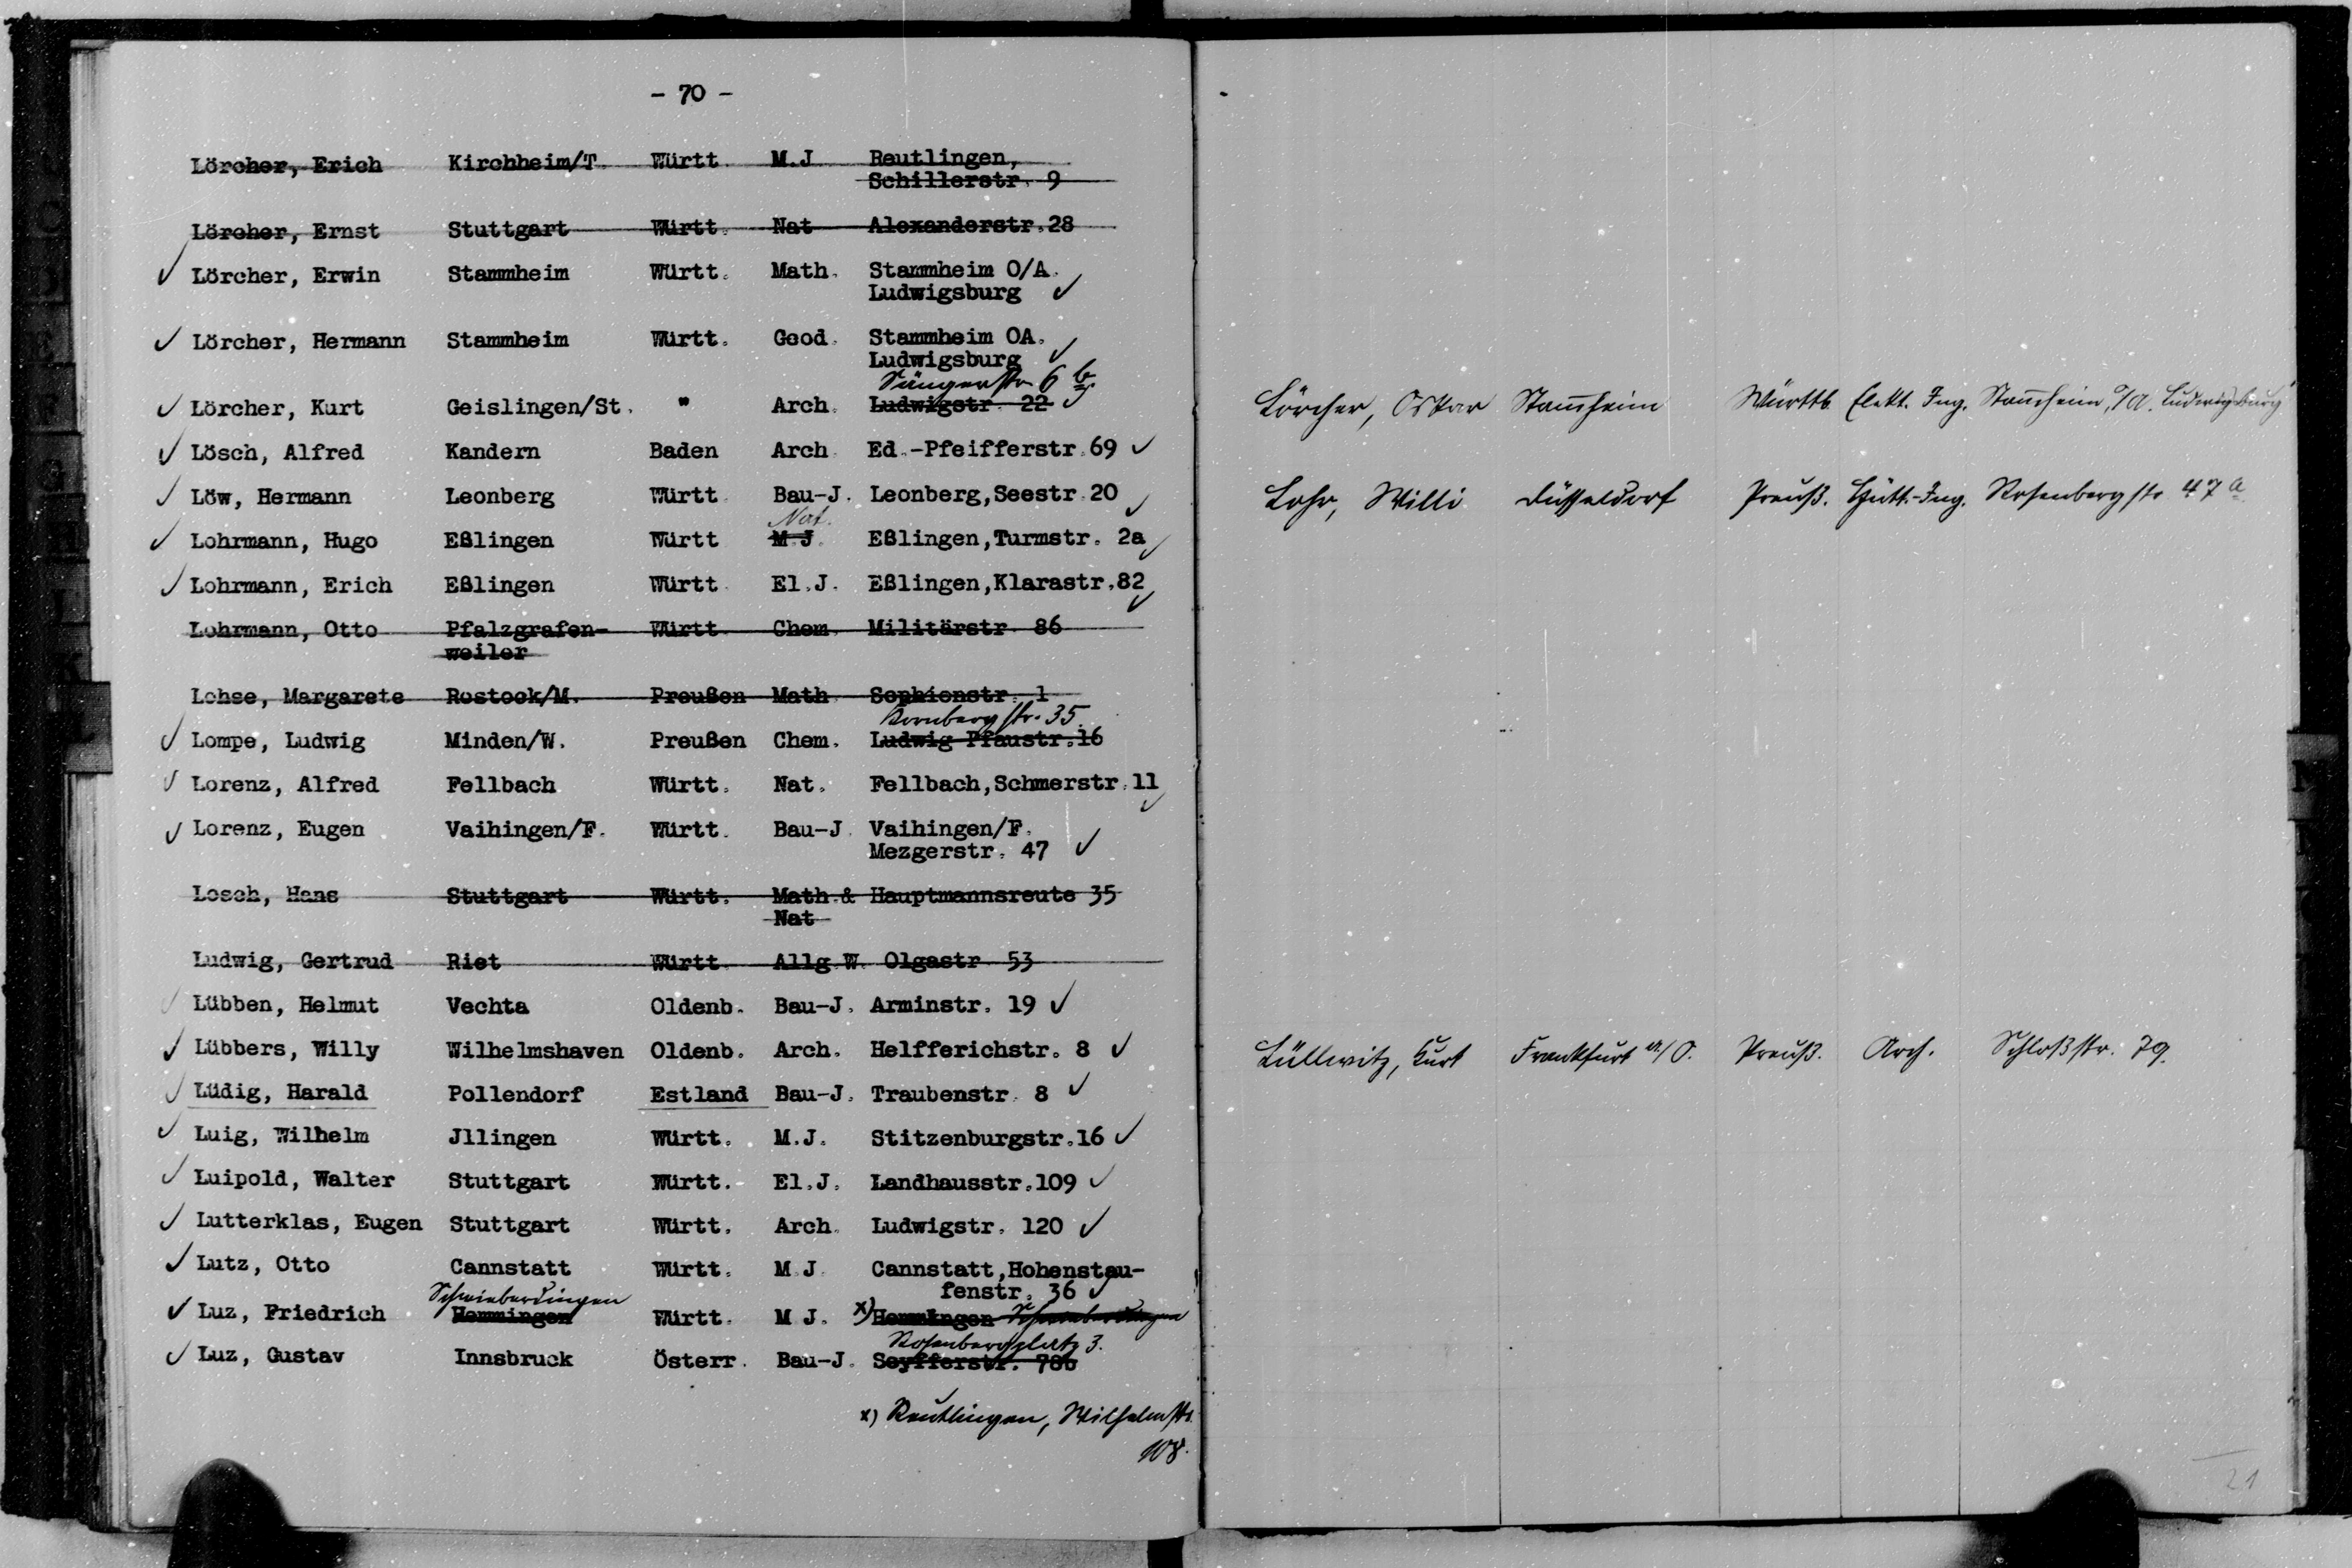 - 70 -
Lörcher, Erich Kirchheim/T. Württ. M.J. Reutlingen,
Schillerstr. 9
Lörcher, Ernst Stuttgart Württ. Nat Alexanderstr.28
✓ Lörcher, Erwin Stammheim Württ. Math. Stammheim O/A.
Ludwigsburg ✓
✓ Lörcher, Hermann Stammheim Württ. Geod. Stammheim OA.
Ludwigsburg ✓
Sängerstr 6 b.
✓ Lörcher, Kurt Geislingen/St. " Arch. Ludwigstr. 22 ✓
✓ Lösch, Alfred Kandern Baden Arch. Ed.-Pfeifferstr.69 ✓
✓ Löw, Hermann Leonberg Württ. Bau-J. Leonberg,Seestr.20 ✓
Nat.
✓ Lohrmann, Hugo Eßlingen Württ M.J. Eßlingen,Turmstr. 2a ✓
✓ Lohrmann, Erich Eßlingen Württ. El.J. Eßlingen,Klarastr.82 ✓
Lohrmann, Otto Pfalzgrafen- Württ. Chem. Militärstr. 86
weiler
Lohse, Margarete Rostock/M. Preußen Math. Sophienstr. 1
Kornbergstr. 35.
✓ Lompe, Ludwig Minden/W. Preußen Chem. Ludwig Pfaustr.16
✓ Lorenz, Alfred Fellbach Württ. Nat. Fellbach,Schmerstr.11 ✓
✓ Lorenz, Eugen Vaihingen/F. Württ. Bau-J. Vaihingen/F.
Mezgerstr. 47 ✓
Losch, Hans Stuttgart Württ. Math.& Hauptmannsreute 35
Nat
Ludwig, Gertrud Riet Württ. Allg.W. Olgastr. 53
✓ Lübben, Helmut Vechta Oldenb. Bau-J. Arminstr. 19 ✓
✓ Lübbers, Willy Wilhelmshaven Oldenb. Arch. Helfferichstr. 8 ✓
✓ Lüdig, Harald Pollendorf Estland Bau-J. Traubenstr. 8 ✓
✓ Luig, Wilhelm Jllingen Württ. M.J. Stitzenburgstr.16 ✓
✓ Luipold, Walter Stuttgart Württ. El.J. Landhausstr.109 ✓
✓ Lutterklas, Eugen Stuttgart Württ. Arch. Ludwigstr. 120 ✓
✓ Lutz, Otto Cannstatt Württ. M.J. Cannstatt,Hohenstau-
fenstr. 36 ✓
Schwieberdingen
✓ Luz, Friedrich Hemmingen Württ. M.J. x) Hemmingen Schwieberdingen
Rosenbergplatz 3.
✓ Luz, Gustav Innsbruck Österr. Bau-J. Seyfferstr. 78b
x) Reutlingen, Wilhelmstr.
108.
Lörcher, Oskar Stammheim Württb. Elekt. Ing. Stammheim, O/A. Ludwigsburg
Lohr, Willi Düsseldorf Preuß. Hütt.-Ing. Rosenbergstr 47 a
Lüllwitz, Kurt Frankfurt a./O. Preuß. Arch. Schloßstr. 79.
21